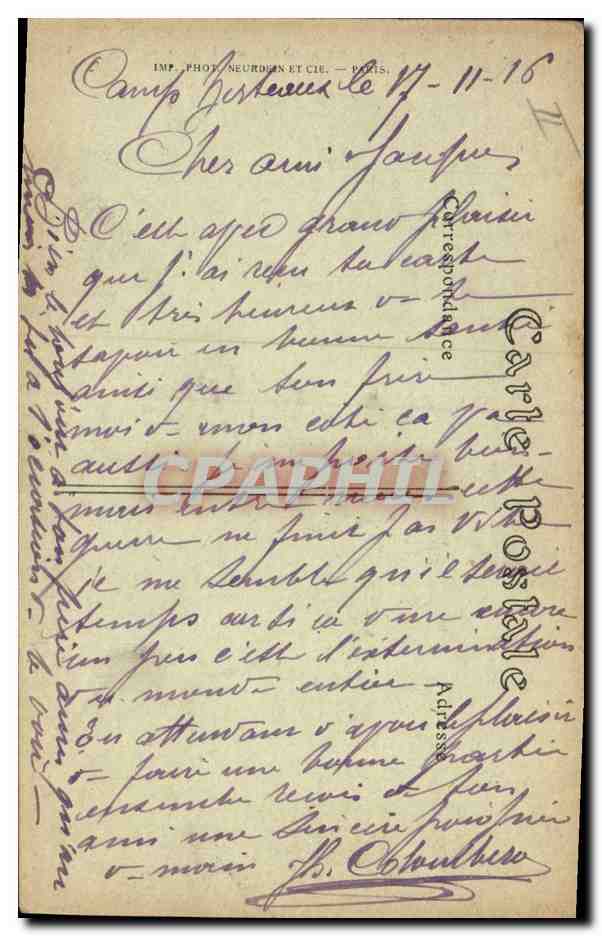 IMP. PHOT. NEURDEIN ET CIE. — PARIS.
Camp le 17-11-16
II
Cher ami Jacques
C'est avec grand plaisir
que j'ai reçu ta carte
et très heureux de te
savoir en bonne santé
ainsi que ton frère
moi de mon côté ça va
aussi
mais cette
guerre ne finit pas vite
je me semble qu'il serait
temps car si ça dure encore
un peu c'est l'extermination
du monde entier
En attendant d'avoir le plaisir
de faire une bonne partie
ensemble reçois de ton
ami une sincère poignée
de main Jh. Colombero
Bien le bonjour à ton frère ainsi qu'au
à l'occasion de le voir —
Correspondance
Carte Postale
Adresse
CPAPHIL